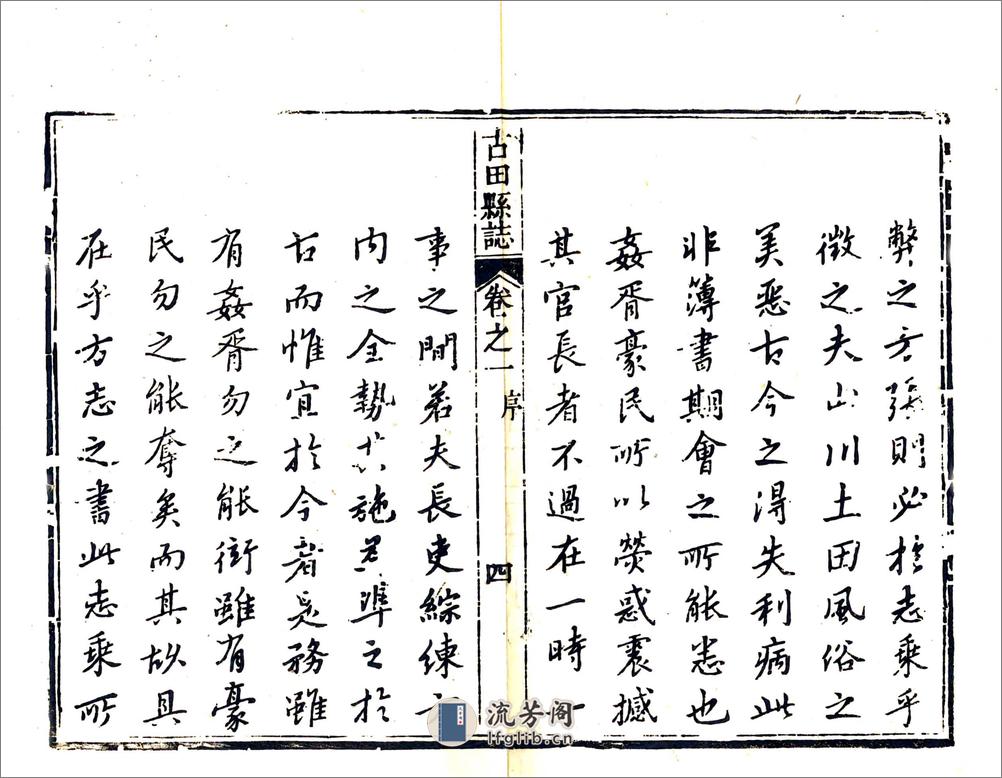 弊之方張則必於志乘乎
徵之夫山川土田風俗之
美惡古今之得失利病此
非簿書期會之所能悉也
姦胥豪民所以熒惑震撼
其官長者不過在一時一
古田縣誌
卷之一
序
四
事之間若夫長吏綜練
內之全勢其施準之於
古而惟宜於今者是務雖
有姦胥勿之能衒雖有豪
民勿之能奪矣而其故具
在乎方志之書此志乘所
流芳阁
lfglib.cn